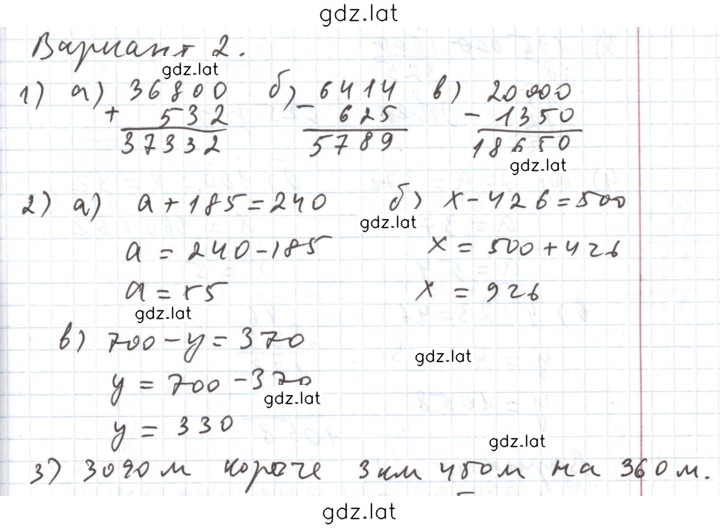 gdz.lat
Вариант 2.
gdz.lat
1) а) 36800 б) 6414 в) 20000
+ 532 - 625 - 1350
37332 5789 18650
gdz.lat
2) а) a + 185 = 240 б) x - 426 = 500
gdz.lat
a = 240 - 185 x = 500 + 426
a = 55 x = 926
gdz.lat
в) 700 - y = 370
gdz.lat
y = 700 - 370
gdz.lat
y = 330
gdz.lat
3) 3090 м короче 3 км 450 м на 360 м.
gdz.lat